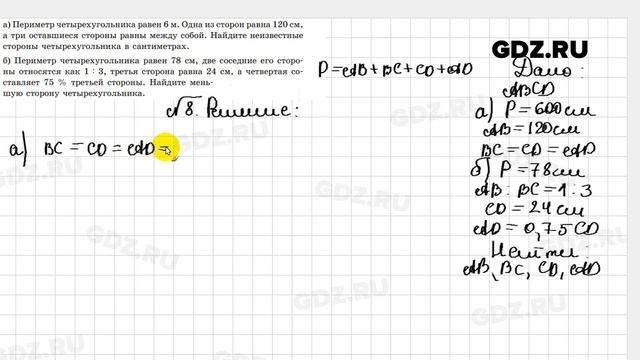 а) Периметр четырехугольника равен 6 м. Одна из сторон равна 120 см,
а три оставшиеся стороны равны между собой. Найдите неизвестные
стороны четырехугольника в сантиметрах.
б) Периметр четырехугольника равен 78 см, две соседние его сторо-
ны относятся как 1 : 3, третья сторона равна 24 см, а четвертая со-
ставляет 75 % третьей стороны. Найдите мень-
шую сторону четырехугольника.
GDZ.RU
P = AB + BC + CD + AD
Дано:
ABCD
а) P = 600 см
AB = 120 см
BC = CD = AD
б) P = 78 см
AB : BC = 1 : 3
CD = 24 см
AD = 0,75 CD
Найти:
AB, BC, CD, AD
№8. Решение:
а) BC = CD = AD =
GDZ.RU
GDZ.RU
GDZ.RU
GDZ.RU
GDZ.RU